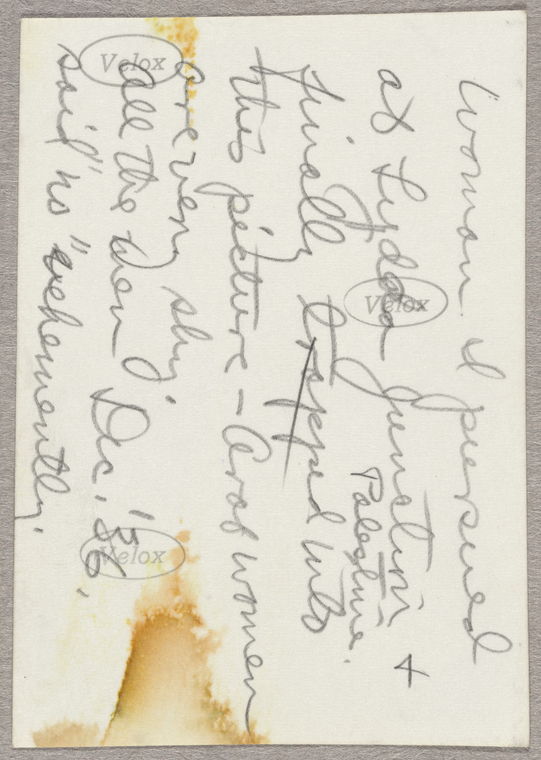 Woman I persued
at Lydda Junction +
Palestine.
finally trapped into
this picture – Arab women
are very shy.
All the men
said "no" vehemently.
Dec. '36.
Velox
Velox
Velox